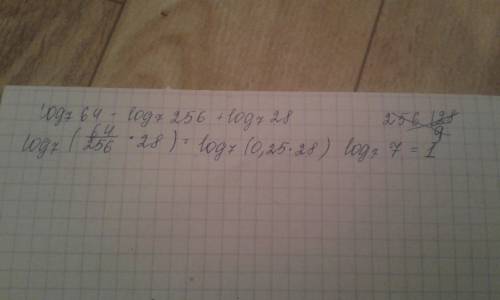 log₇ 64 - log₇ 256 + log₇ 28
log₇ (64/256 * 28) = log₇ (0,25 * 28) log₇ 7 = 1